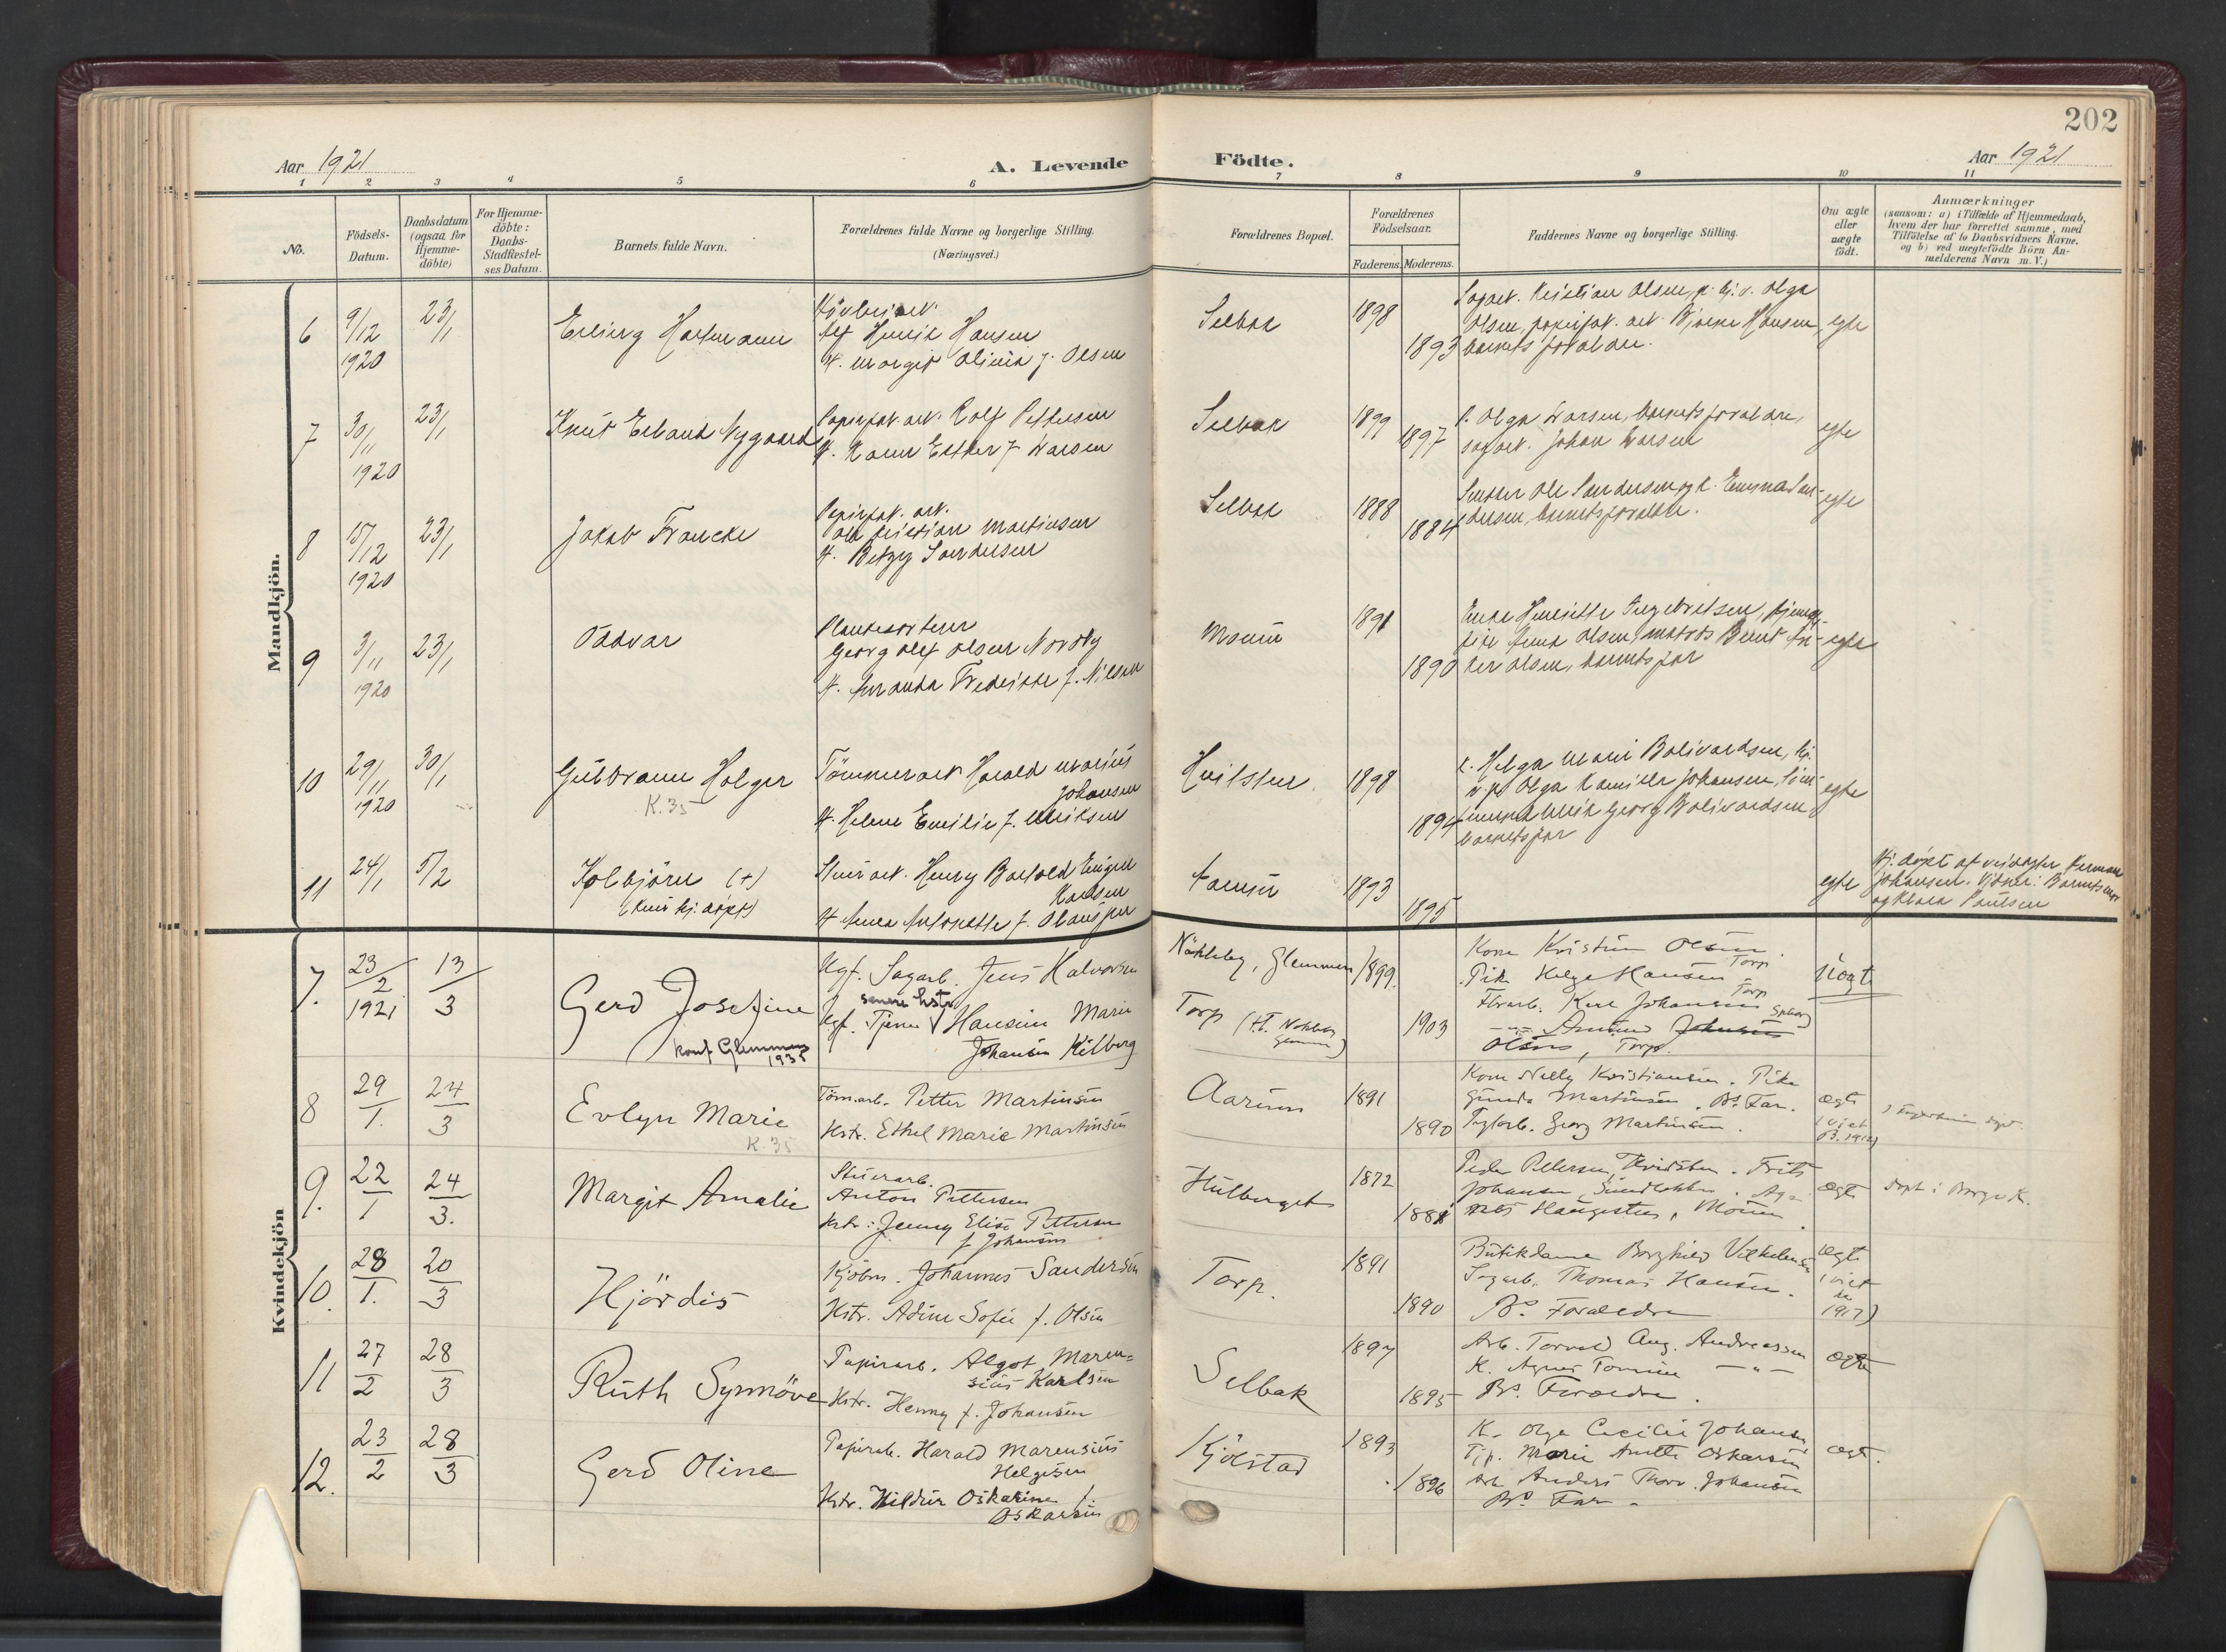 202
Aar 1921
A. Levende
Födte.
Aar 1921
1 2 3 4 5 6 7 8 9 10 11
No.
Födsels-
Datum.
Daabsdatum
(ogsaa for
Hjemme-
döbte)
For Hjemme-
döbte:
Daabs-
Stadfæstel-
ses Datum.
Barnets fulde Navn.
Forældrenes fulde Navne og borgerlige Stilling.
(Næringsvei.)
Forældrenes Bopæl.
Forældrenes
Födselsaar.
Faderens. Moderens.
Faddernes Navne og borgerlige Stilling.
Om ægte
eller
uægte
födt.
Anmærkninger
(saasom: a) i Tilfælde af Hjemmedaab,
hvem der har forrettet samme, med
Tilföielse af to Daabsvidners Navne.
og b) ved uægtefödte Börn An-
melderens Navn m. V.)
Mandkjön.
6 9/12 1920 23/1
Erling Hartmann
Alf Henrik Hansen
H. Margit Olivia f. Olsen
Selbak 1898 1893
Sagarb. Kristian Olsen, k. hj. v. Olga
Olsen, papirfab. arb. Bjarne Hansen
barnets foreldre.
egte
7 30/11 1920 23/1
Knut Erland Nygaard
Papirfab. arb. Rolf Pettersen
H. Karen Esther f. Larsen
Selbak 1899 1897
k. Olga Larsen, barnets foreldre,
sagarb. Johan Larsen
egte
8 15/12 1920 23/1
Jakob Francke
Papirfab. arb.
Ole Kristian Martinsen
H. Betzy Sandersen
Selbak 1888 1884
Ole Sandersen og k. Emma San-
dersen, barnets foreldre.
egte
9 3/11 1920 23/1
Oddvar
Plankesorterer
Georg Olaf Olsen Nordby
H. Amanda Fredrikke f. Nilsen
Moum 1891 1890
Enke Henriette Ingebretsen,
Anna Olsen, matros Bernt An-
ker Olsen, barnets far
egte
10 29/11 1920 30/1
Gulbrann Holger
K. 35
Tömmerarb Harald Marius
Johansen
H. Helene Emilie f. Ulriksen
1898 1894
k. Helga Marie Bolivardsen, hj.
v. pr. Olga Kamilla Johansen,
Ulrik Georg Bolivardsen,
barnets far
egte
11 24/1 5/2
Kolbjörn (+)
(kun hj. döpt)
Stuerarb. Henry Bartold Eugen
Karlsen
H. Anna Antonette f. Olausen
1893 1895
egte
Hj. döpt af veivogter Herman
Johansen. Vidner: Barnets mor
og Klara Paulsen
Kvindekjön
7. 23/2 1921 13/3
Gerd Josefine
konf Glemmen
1935
Ugf. Sagarb. Jens Halvorsen
senere hstr.
Ugf. Tjener Hansine Marie
Johansen Kilberg
Nökleby, Glemmen 1899.
Torp (H. Nökleby
Glemmen) 1903
Kone Kristine Olsen
Torp
Pike Helga Hansen Torp
Karl Johansen
Amund Johansen
Olsen, Torp.
Uegt
8 29/1. 24/3
Evlyn Marie
K. 35
Töm.arb. Petter Martinsen
Hstr. Ethel Marie Martinsen
Aarum 1891 1890
Kone Nelly Kristiansen. Pike
Gunda Martinsen. Bs. Far.
Teglarb. Georg Martinsen.
ægte
9. 22/1 24/3.
Margit Amalie
Stuerarb.
Anton Pettersen
Hstr: Jenny Elise Pettersen
f Johansen
Hulberget 1872 1881
Peder Petersen, Hvidsten. Frits
Johansen Sundlökka.
Haugesten, Moum.
ægte
döpt i Borge K.
10. 28/1. 20/3
Hjördis
Kjöbm. Johannes Sandersen
Hstr. Adine Sofie f. Olsen
Torp. 1891 1890
Butikdame Borghild Vilhelmsen
Sagarb. Thomas Hansen.
Bs. Foreldre
ægte
(viet
1917)
11 27/2 28/3
Ruth Synnöve
Papirarb. Algot Maren=
sius Karlsen
Hstr. Henny f. Johansen
Selbak 1897 1895
Arb. Torvald Aug. Andreassen
K. Agnes Tomine — " —
Bs. Foreldre.
ægte
12. 23/2 28/3
Gerd Oline
Papirarb. Harald Marensius
Helgesen
Hstr. Hildur Oskarine f.
Oskarsen
Kjölstad 1893 1896
K. Olga Cecilie Johansen
Tjp. Marie Anette Oskarsen
Arb. Anders Thorv. Johansen
Bs. Far.
ægt.